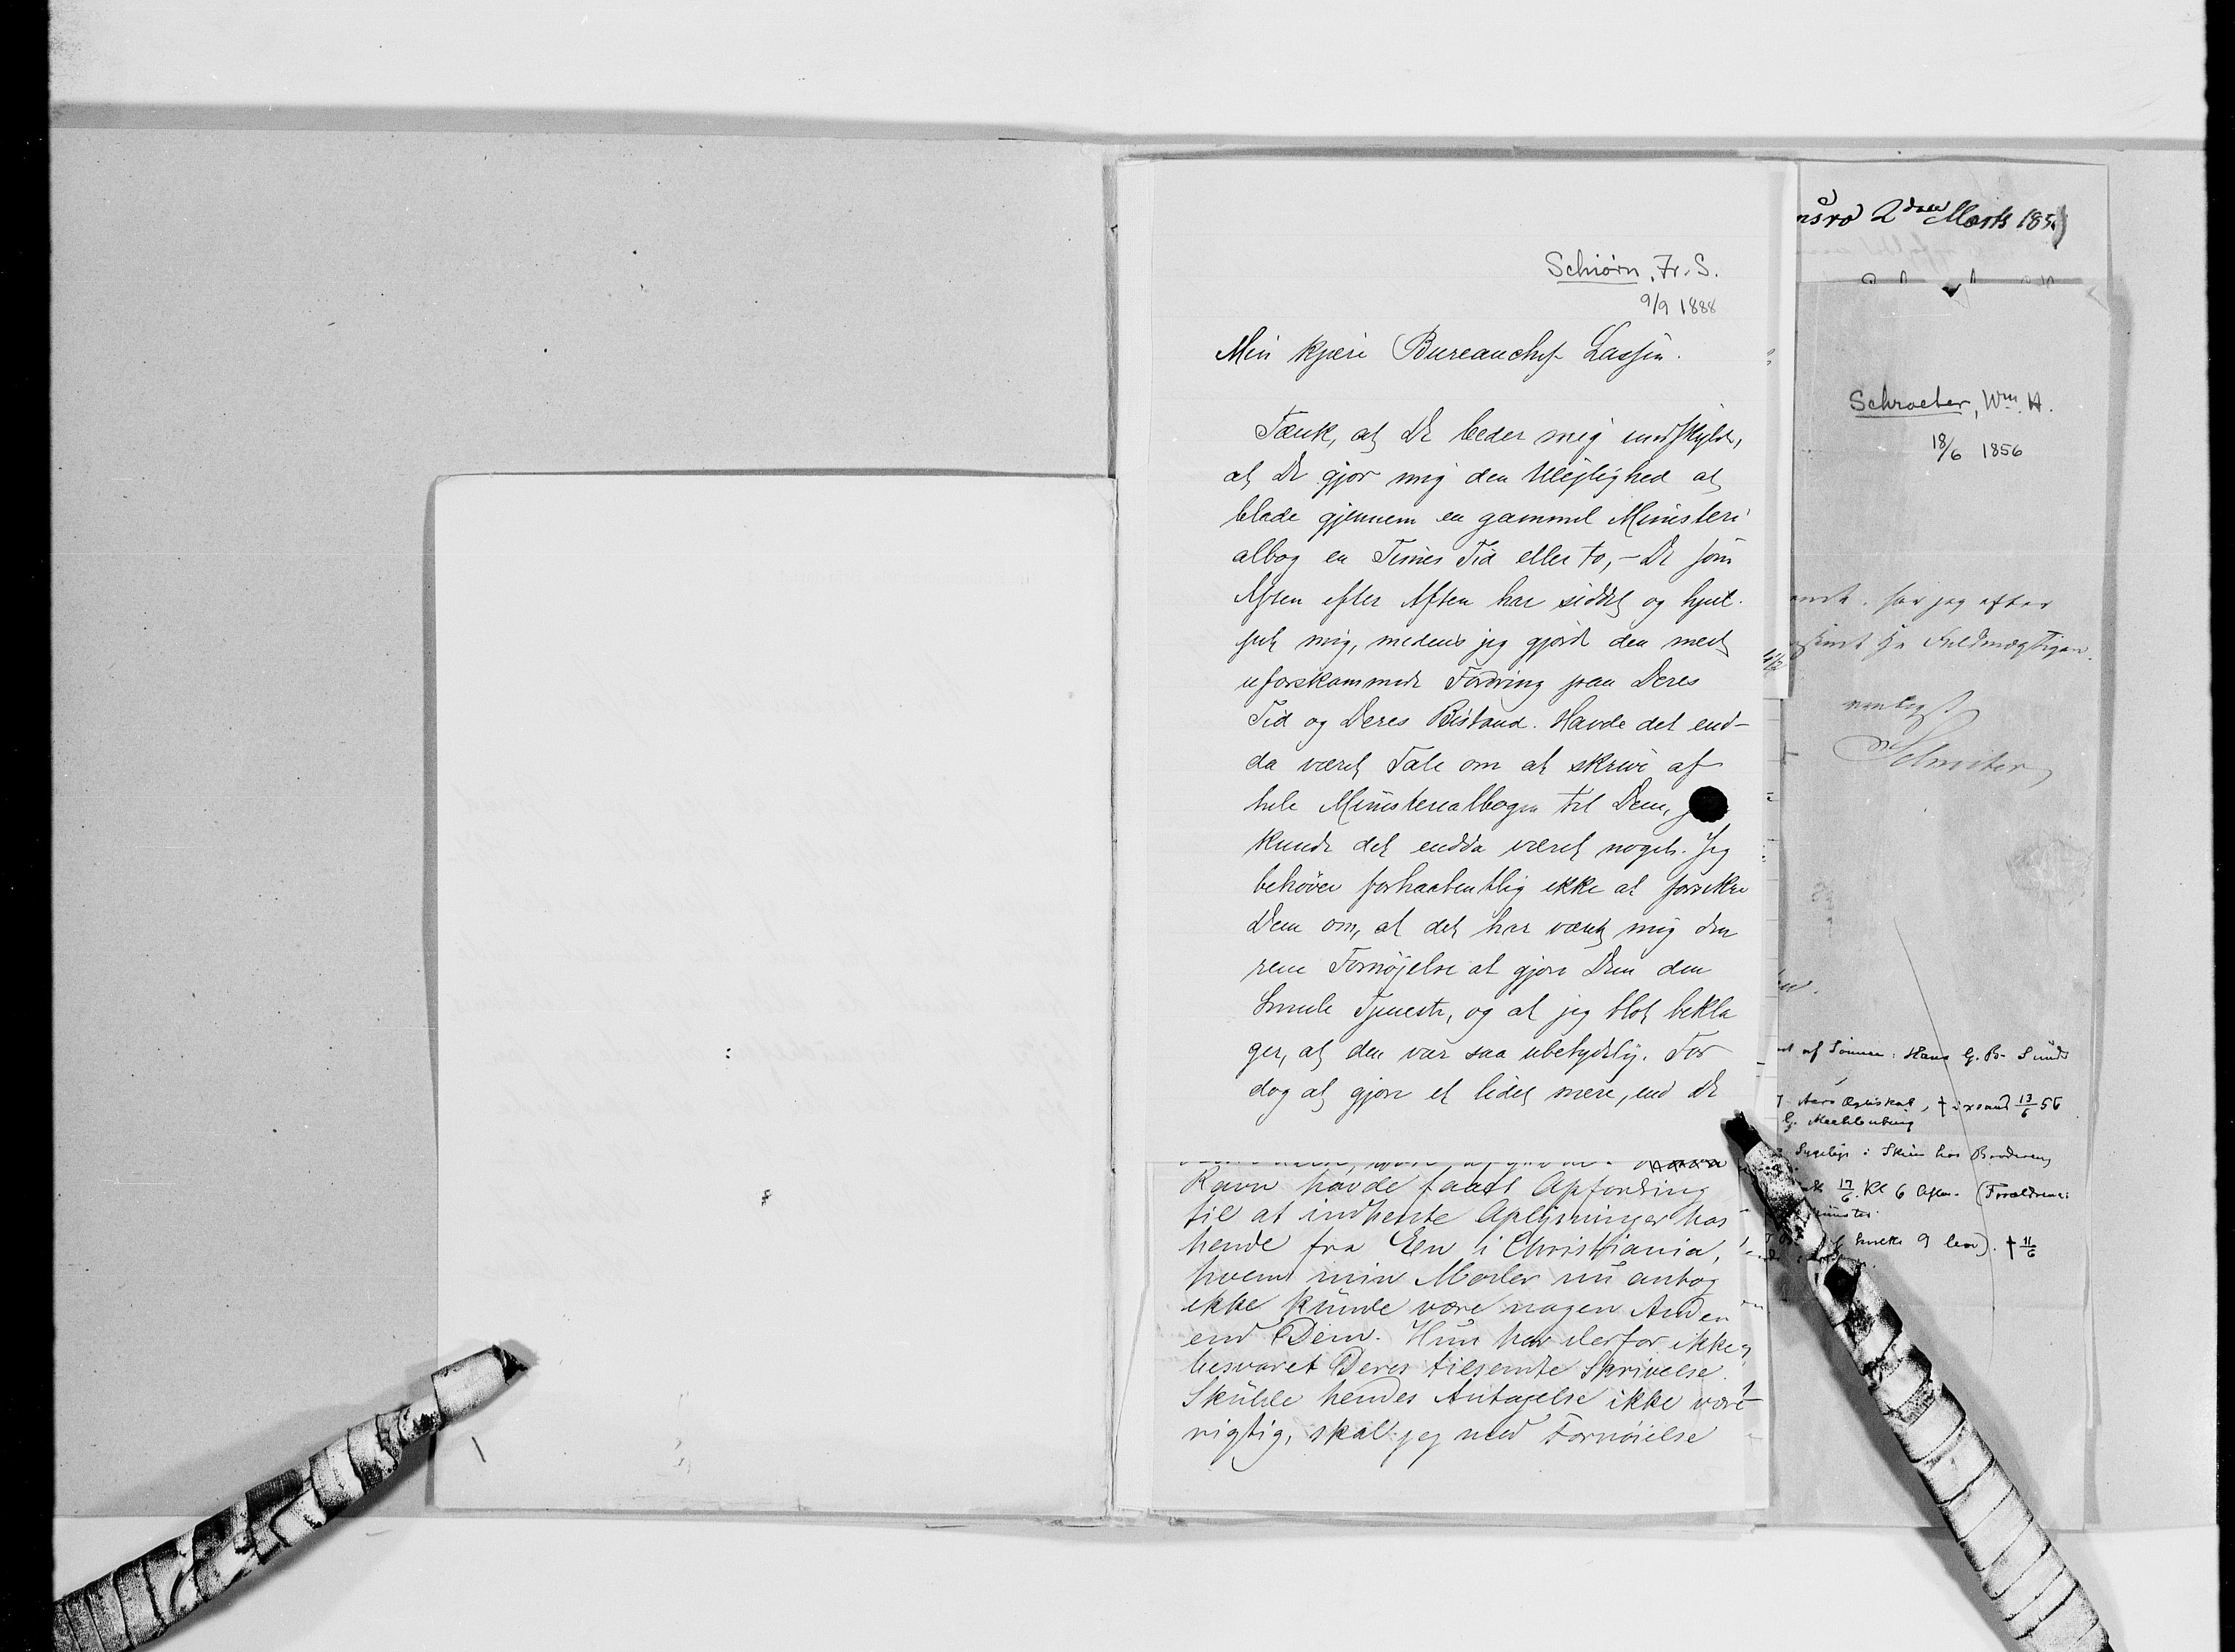 Schiørn, Fr. S.
9/9 1888
Min kjære Bureauchef Lassen.
Tænk, at De beder mig undskylde,
at De gjør mig den Ulejlighed at
blade gjennem en gammel Ministeri
albog en Times Tid eller to, – De som
Aften efter Aften har siddet og hjul-
pet mig, medens jeg gjorde den mest
uforskammede Fordring paa Deres
Tid og Deres Bistand. Havde det end-
da været Tale om at skrive af
hele Ministerialbogen til Dem,
kunde det endda været noget. Jeg
behøver forhaabentlig ikke at forsikre
Dem om, at det har været mig den
rene Fornøjelse at gjøre Dem den
Smule Tjeneste, og at jeg blot bekla
ger, at den var saa ubetydelig. For
dog at gjøre et lidet mere, end De
Ravn havde faaet Opfordring
til at indhente Oplysninger hos
hende fra Een i Christiania,
hvem min Moder nu antog
ikke kunde være nogen Anden
end Dem. Hun har derfor ikke
besvaret Deres tilsendte Skrivelse.
Skulde hendes Antagelse ikke være
rigtig, skal jeg med Fornøielse
2den Marts 185
Schroeter, Wm. H.
18/6 1856
har jeg efter
Fuldmægtigen
venligst
Schroeter
af Sønnen: Hans G. B. Sundt
Aars Ægteskab, † 13/6 56
G. Mechlenburg
i Skien hos Broderen
17/6. Kl 6 (Forældrene:
9 lev). † 11/6